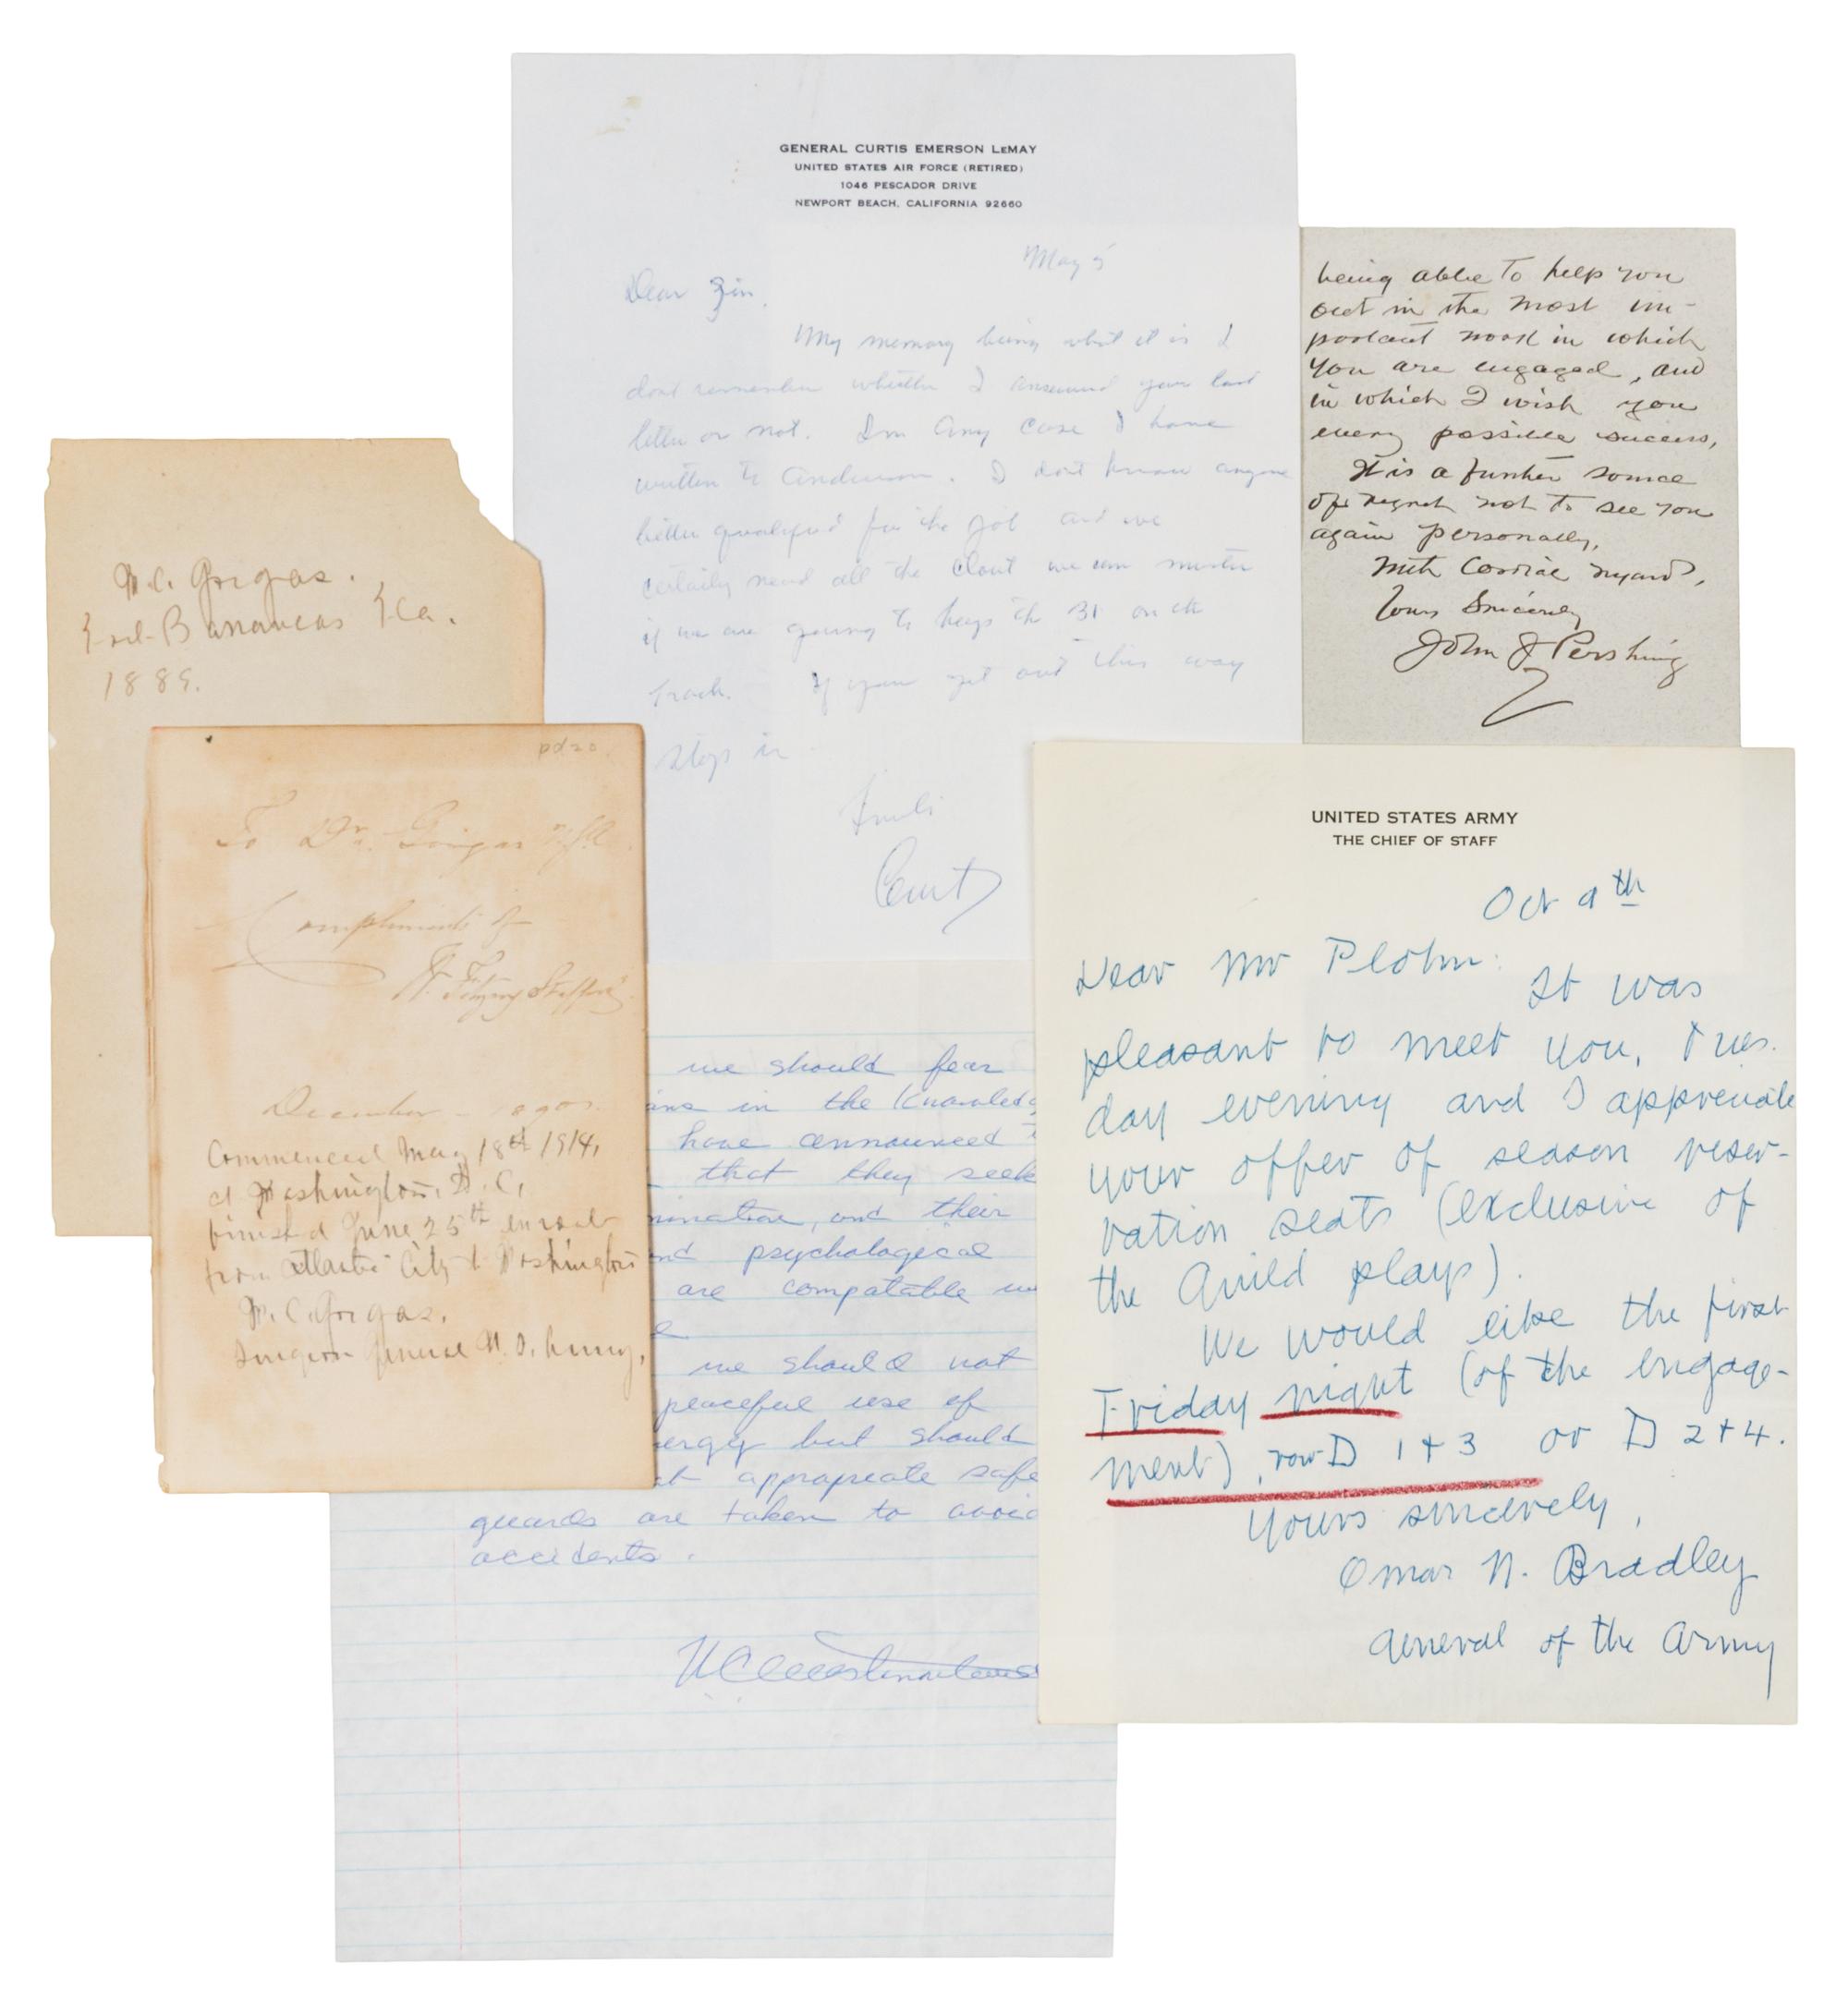 GENERAL CURTIS EMERSON LEMAY
UNITED STATES AIR FORCE (RETIRED)
1046 PESCADOR DRIVE
NEWPORT BEACH, CALIFORNIA 92660
May 5
Dear
My memory being what it is I
dont remember whether I answered your last
letter or not. In any case I have
written to Anderson. I dont know anyone
better qualified for the job and we
certaily need all the clout we can muster
if we are going to keep the B1 on the
track. If you get out this way
stop in
Curt
being able to help you
out in the most im-
portant work in which
you are engaged, and
in which I wish you
every possible success,
It is a further source
of regret not to see you
again personally,
With Cordial regards,
Yours Sincerely
John J Pershing
W. C. Gorgas.
Fort Barrancas Fla.
1889.
pd20
To Dr. Gorgas
Compliments of
December
Commenced May 18th 1914,
at Washington, D. C,
finished June 25th enroute
from Atlantic City to Washington
W. C. Gorgas.
Surgeon General U. S. Army,
we should fear
in the Knowledg
have announced
that they seek
and their
psychological
are compatable
we should not
peaceful use of
but should
appropreate safe
guards are taken to avoid
accidents.
W C Westmoreland
UNITED STATES ARMY
THE CHIEF OF STAFF
Oct 9th
Dear Mr Plohn:
It was
pleasant to meet you, Tues-
day evening and I appreciate
your offer of season reser-
vation seats (exclusive of
the Guild plays).
We would like the first
Friday night (of the engage-
ment), row D 1 + 3 or D 2 + 4.
Yours sincerely,
Omar N. Bradley
General of the Army